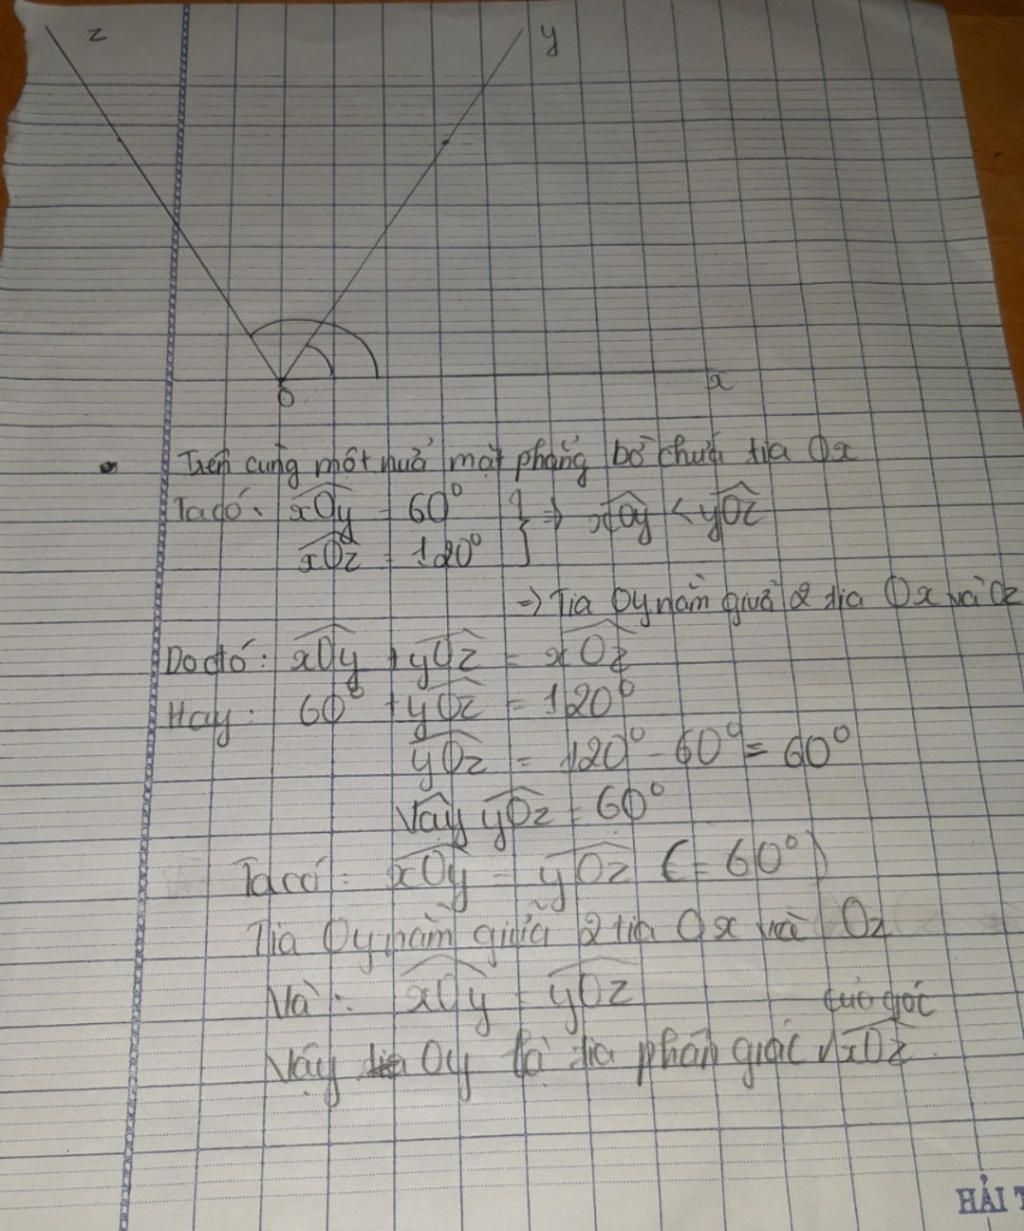 z
y
O
x
Trên cùng một nửa mặt phẳng bờ chứa tia Ox
Ta có: xOy = 60° } => xOy < yOz
xOz = 120°
=> Tia Oy nằm giữa 2 tia Ox và Oz
Do đó: xOy + yOz = xOz
Hay: 60° + yOz = 120°
yOz = 120° - 60° = 60°
Vậy yOz = 60°
Ta có: xOy = yOz (= 60°)
Tia Oy nằm giữa 2 tia Ox và Oz
Và: xOy = yOz
của góc
Vậy tia Oy là tia phân giác √ xOz.
HẢI T